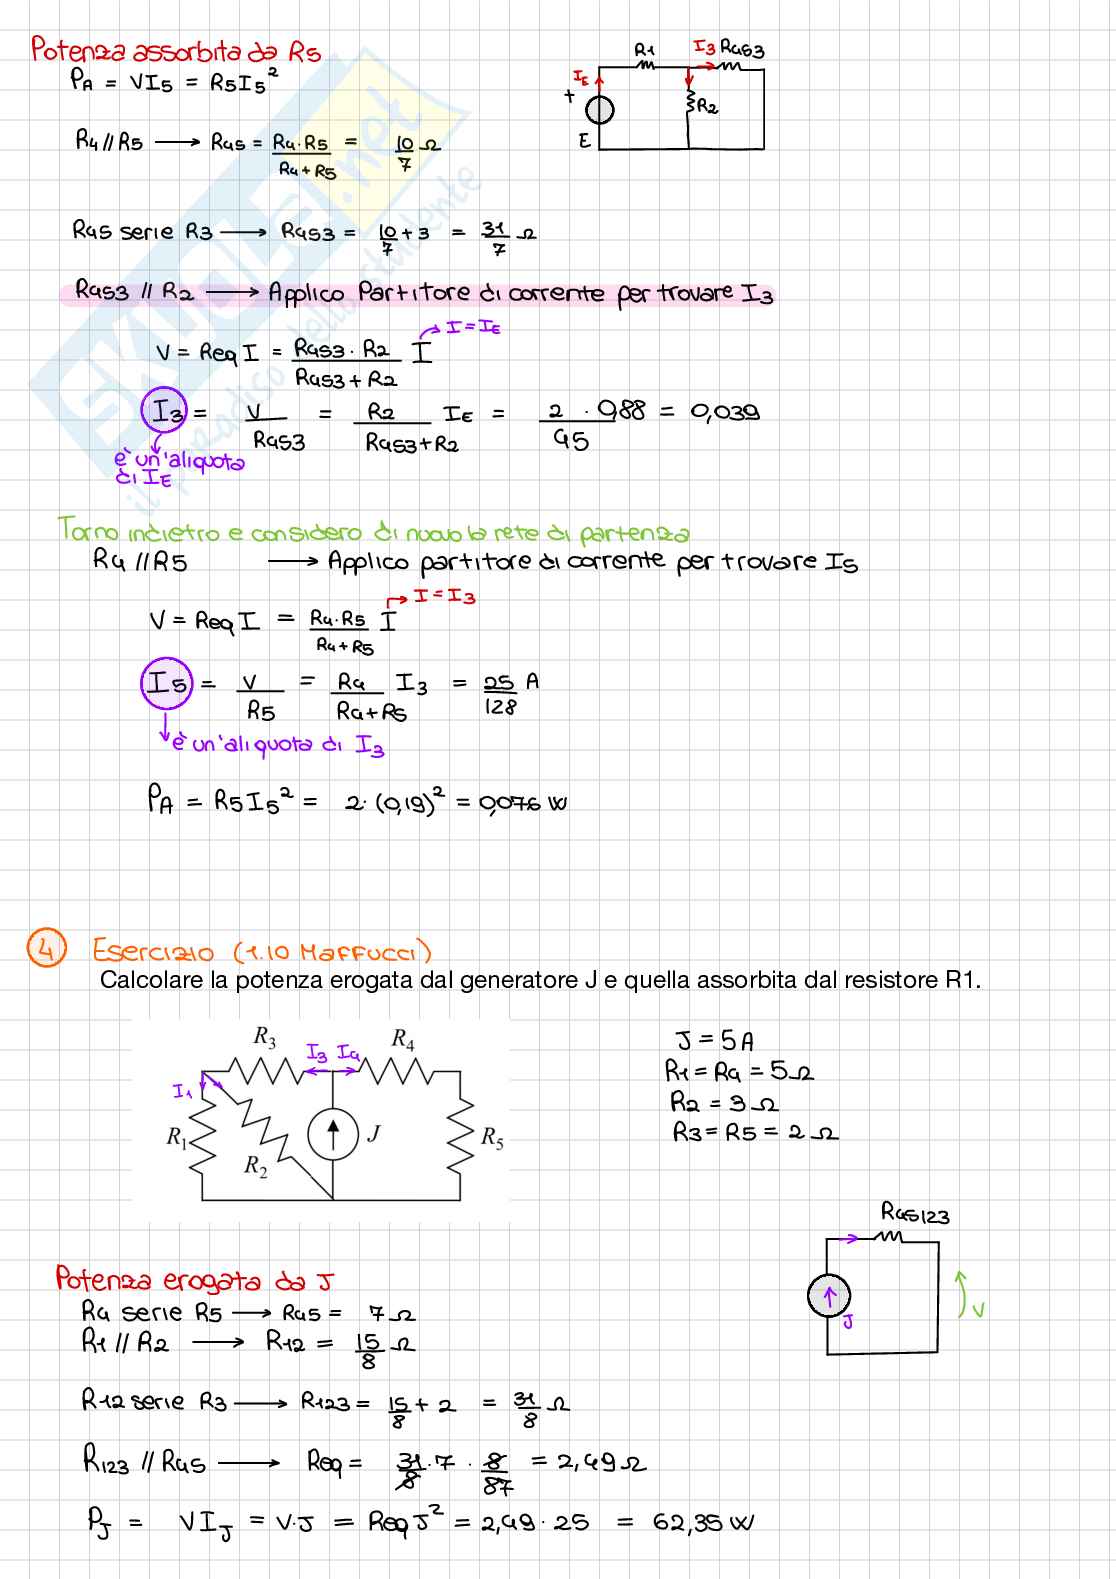 Potenza assorbita da R5
PA = VI5 = R5I5²
R1 I3 R453
IE
+ R2
E
R4 // R5 → R45 = R4·R5 / R4+R5 = 10/7 Ω
R45 serie R3 → R453 = 10/7 + 3 = 31/7 Ω
R453 // R2 → Applico Partitore di corrente per trovare I3
I = IE
V = Req I = R453 · R2 / R453 + R2 I
I3 = V / R453 = R2 / R453 + R2 IE = 2 / 45 · 0,88 = 0,039
è un'aliquota
di IE
Torno indietro e considero di nuovo la rete di partenza
R4 // R5 → Applico partitore di corrente per trovare I5
I = I3
V = Req I = R4·R5 / R4+R5 I
I5 = V / R5 = R4 / R4+R5 I3 = 25/128 A
è un'aliquota di I3
PA = R5I5² = 2·(0,19)² = 0,076 W
4 Esercizio (1.10 Maffucci)
Calcolare la potenza erogata dal generatore J e quella assorbita dal resistore R1.
R3 I3 I4 R4
I1
R1 R2 J R5
J = 5A
R1 = R4 = 5Ω
R2 = 3Ω
R3 = R5 = 2Ω
R45123
J V
Potenza erogata da J
R4 serie R5 → R45 = 7Ω
R1 // R2 → R12 = 15/8 Ω
R12 serie R3 → R123 = 15/8 + 2 = 31/8 Ω
R123 // R45 → Req = 31/8 · 7 · 8/87 = 2,49Ω
PJ = VIJ = V·J = Req J² = 2,49·25 = 62,35 W
SKUOLA.net
il paradiso dello studente